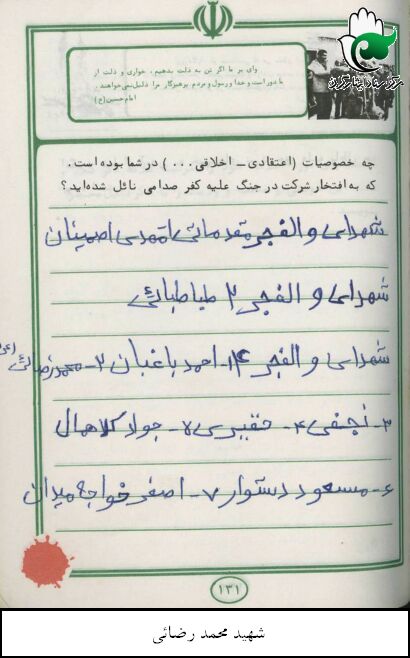 مرکز اسناد ایثارگران
وای بر ما اگر تن به ذلت بدهیم، خواری و ذلت از
ما دور است و خدا و رسول و مردم پرهیزگار مرا ذلیل نمی‌خواهند.
امام حسین (ع)
چه خصوصیات (اعتقادی ـ اخلاقی ...) در شما بوده است.
که به افتخار شرکت در جنگ علیه کفر صدامی نائل شده‌اید؟
شهدای والفجر مقدماتی
شهدای والفجر ۲ طباطبائی
شهدای والفجر ۴ ۱- احمد باغبان ۲- محمد رضائی
۳- نجفی ۴- حقیری ۵- جواد کلاهمال
۶- مسعود دستوار ۷- اصغر خواجه میدان
۱۳۱
شهید محمد رضائی